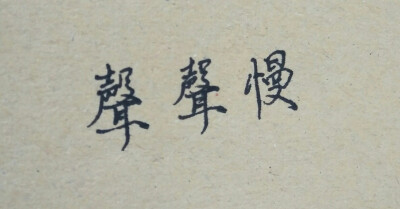 聲聲慢